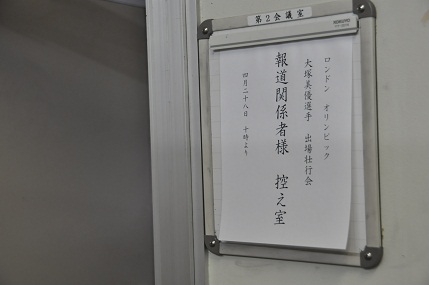 第2会議室
ロンドン オリンピック
大塚美優選手 出場壮行会
報道関係者様 控え室
四月二十八日 十時より